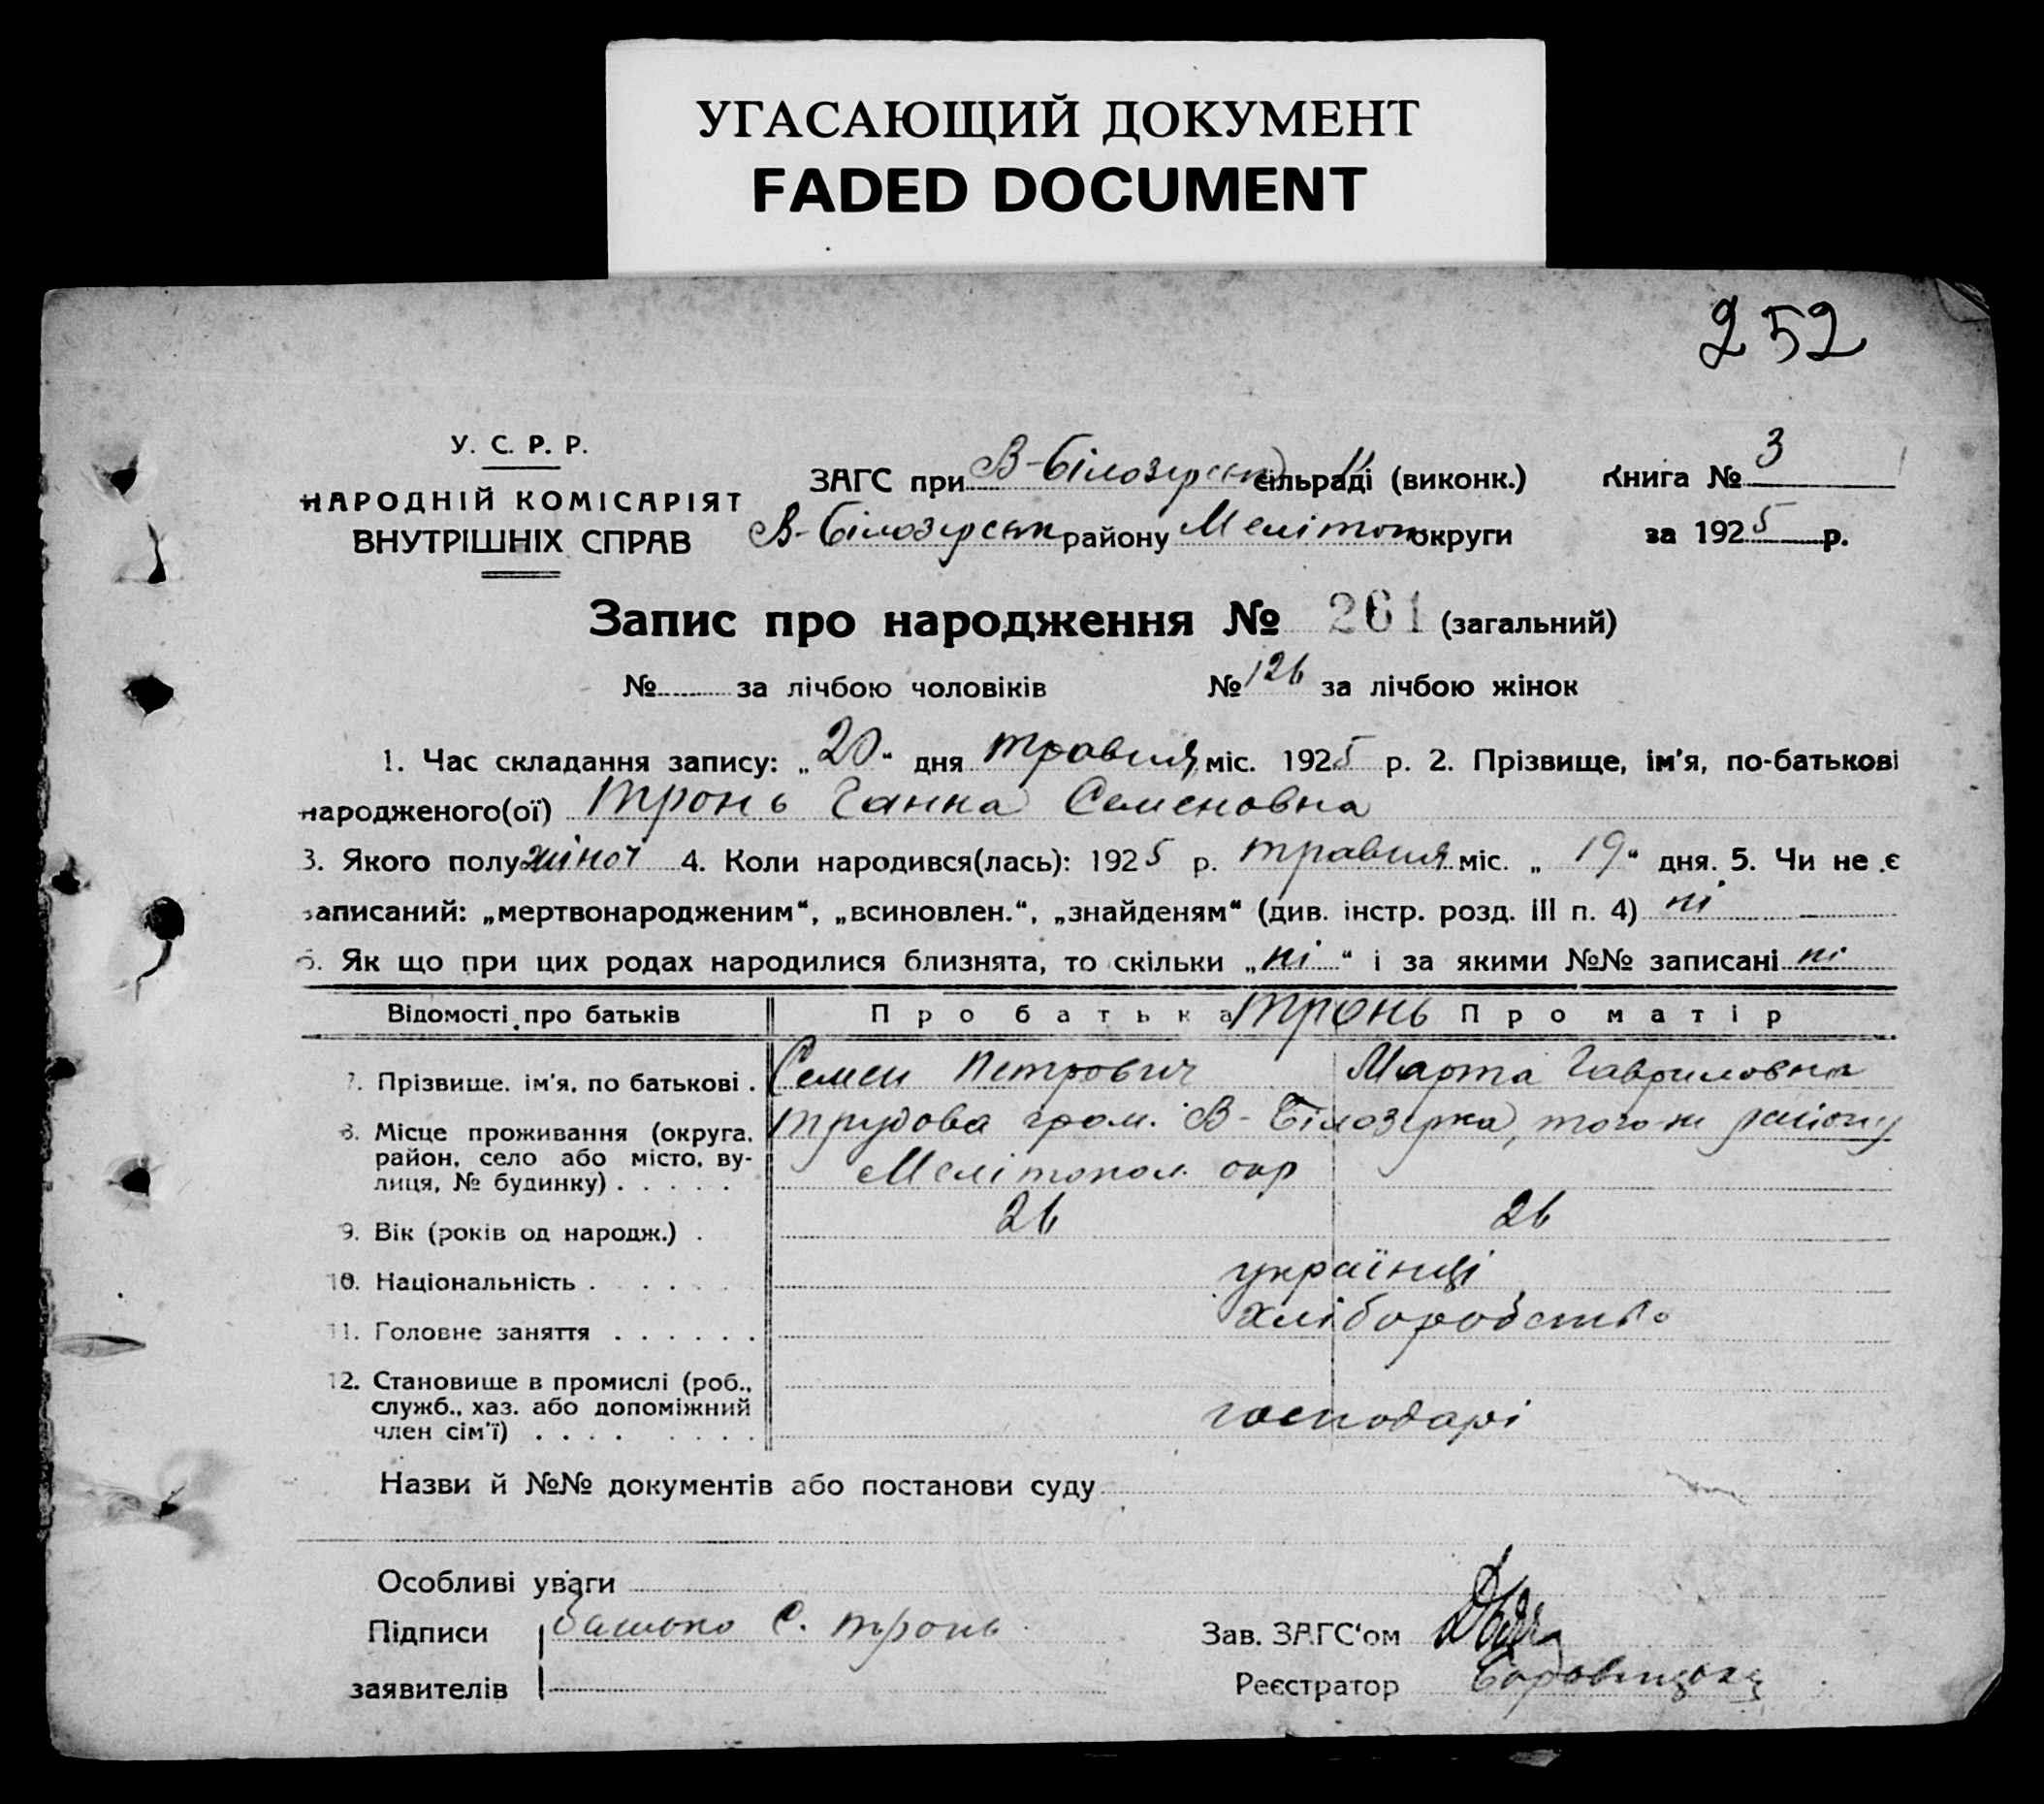 УГАСАЮЩИЙ ДОКУМЕНТ
FADED DOCUMENT
252
У. С. Р. Р.
НАРОДНІЙ КОМІСАРІЯТ
ВНУТРІШНІХ СПРАВ
ЗАГС при В-Білозірськ сільраді (виконк.)
В-Білозірськ району Мелітоп округи
Книга № 3
за 1925 р.
Запис про народження № 261 (загальний)
№ за лічбою чоловіків № 126 за лічбою жінок
1. Час складання запису: „20“ дня травня міс. 1925 р. 2. Прізвище, ім'я, по-батькові
народженого(ої) Тронь Ганна Семеновна
3. Якого полу жіноч 4. Коли народився(лась): 1925 р. травня міс. „19“ дня. 5. Чи не є
записаний: „мертвонародженим“, „всиновлен.“, „знайденям“ (див. інстр. розд. III п. 4) ні
6. Як що при цих родах народилися близнята, то скільки „ні“ і за якими №№ записані ні
Відомості про батьків Про батька Тронь Про матір
7. Прізвище, ім'я, по батькові . Семен Петрович Марта Гавриловна
8. Місце проживання (округа, Трудова гром. В-Білозірка, того-ж району
район, село або місто, ву-
лиця, № будинку) . . . . . Мелітопол окр
9. Вік (років од народж.) . 26 26
10. Національність . . . . . українці
11. Головне заняття . . . . . . хліборобство
12. Становище в промислі (роб.,
служб., хаз. або допоміжний господарі
член сім'ї) . . . . . . . .
Назви й №№ документів або постанови суду
Особливі уваги
Підписи Батько С. Тронь
заявителів
Зав. ЗАГС'ом
Реєстратор